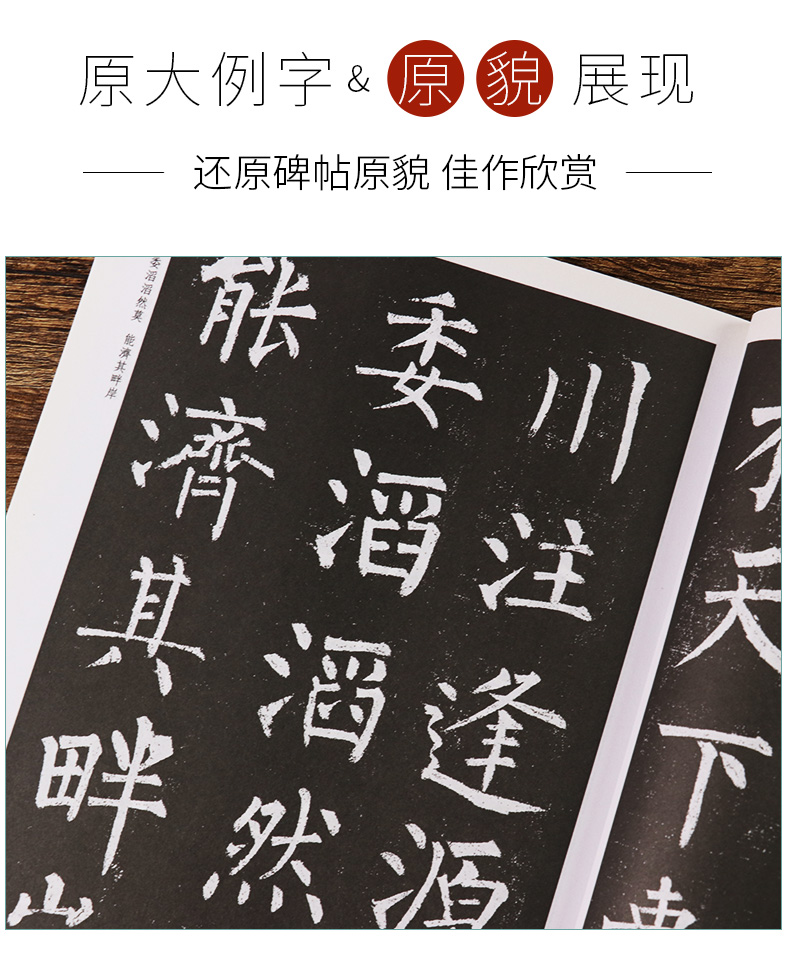 原大例字&原貌展现
还原碑帖原貌 佳作欣赏
天下
川注逢源
委滔滔然
能濟其畔
委滔滔然莫 能濟其畔岸